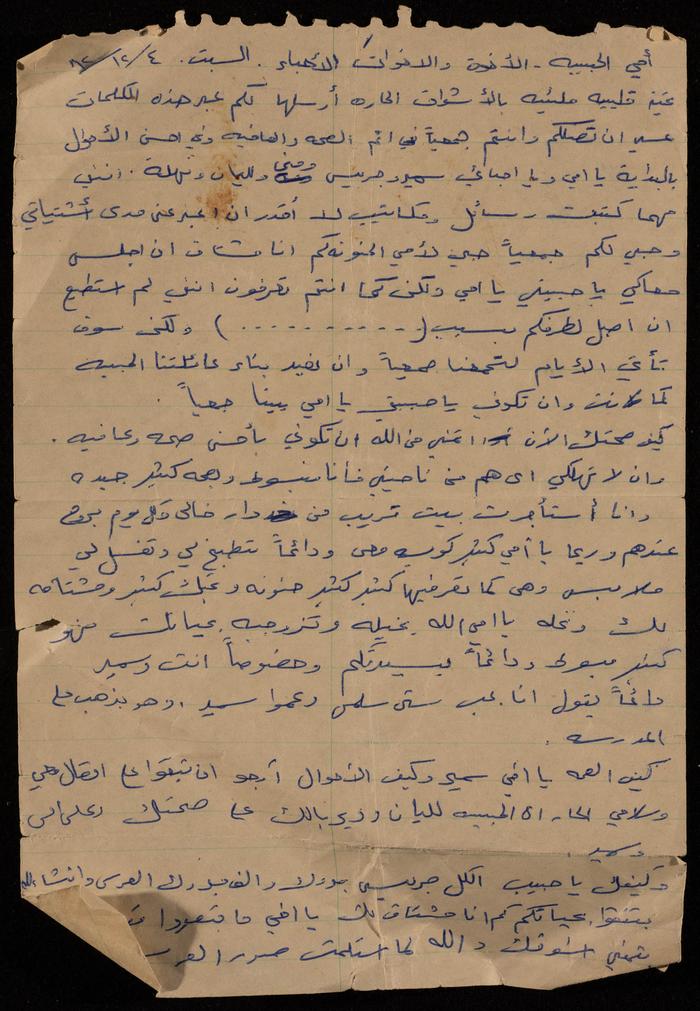 أمي الحبيبة - الأخوة والاخوات الأحباء . السبت . ٤ / ١٢ / ٨٢
تحية قلبيه مليئه بالأشواق الحاره أرسلها لكم عبر هذه الكلمات
عسى ان تصلكم وانتم جميعاً في اتم الصحه والعافيه وفي احسن الأحوال
بالبداية يا امي ويا احبائي سمير وجريس ومنى وليان ونهلة . انني
مهما كتبت رسائل ومكاتيب لا أقدر ان اعبر عن مدى أشتياقي
وحبي لكم جمعياً حبي لأمي الحنونه كم انا مشتاق ان اجلس
معاكي يا حبيبتي يا امي ولكن كما انتم تعرفون انني لم استطع
ان اصل لطرفكم بسبب ( . . . . . . . . . . . ) ولكن سوف
تأتي الأيام لتجمعنا جمعياً وان نعيد بناء عائلتنا الحبيبه
كما كانت وان تكوني يا حبيبتي يا امي بيننا جمعياً .
كيف صحتك الأن اتمنى من الله ان تكوني بأحسن صحه وعافيه .
وان لا تهكلي اي هم من ناحيتي فأنا مبسوط وبصحه كثير جيده
وانا أستأجرت بيت قريب من دار خالي وكل يوم بروح
عندهم وربما يا أمي كثير كويسه معي ودائماً بتطبخ لي وتغسل لي
ملابسي وهي كما تعرفيها كثير كثير حنونه وبتحبك كثير ومشتاقه
لك ونخله يا امي الله يخليه وتتزوجيه بحياتك فهو
كثير مبسوط ودائماً بسيرتكم وخصوصاً انت وسمير
دائماً يقول انا بحب ستي سلمى وعمو سمير . وهو بذهب على
المدرسه .
كيف الصحه يا اخي سمير وكيف الأحوال أرجو ان تبقوا على اتصال معي
وسلامي الحار الى الحبيبه ليان ودير بالك على صحتك وعلى امي
وسمير .
وكيفك يا حبيب الكل جريس مبروك والف مبروك العرس وانشاءالله
بتتهنوا بحياتكم كم انا مشتاق لك يا اخي ما بتعود
بتمنى اشوفك والله لما استلمت صور العرس